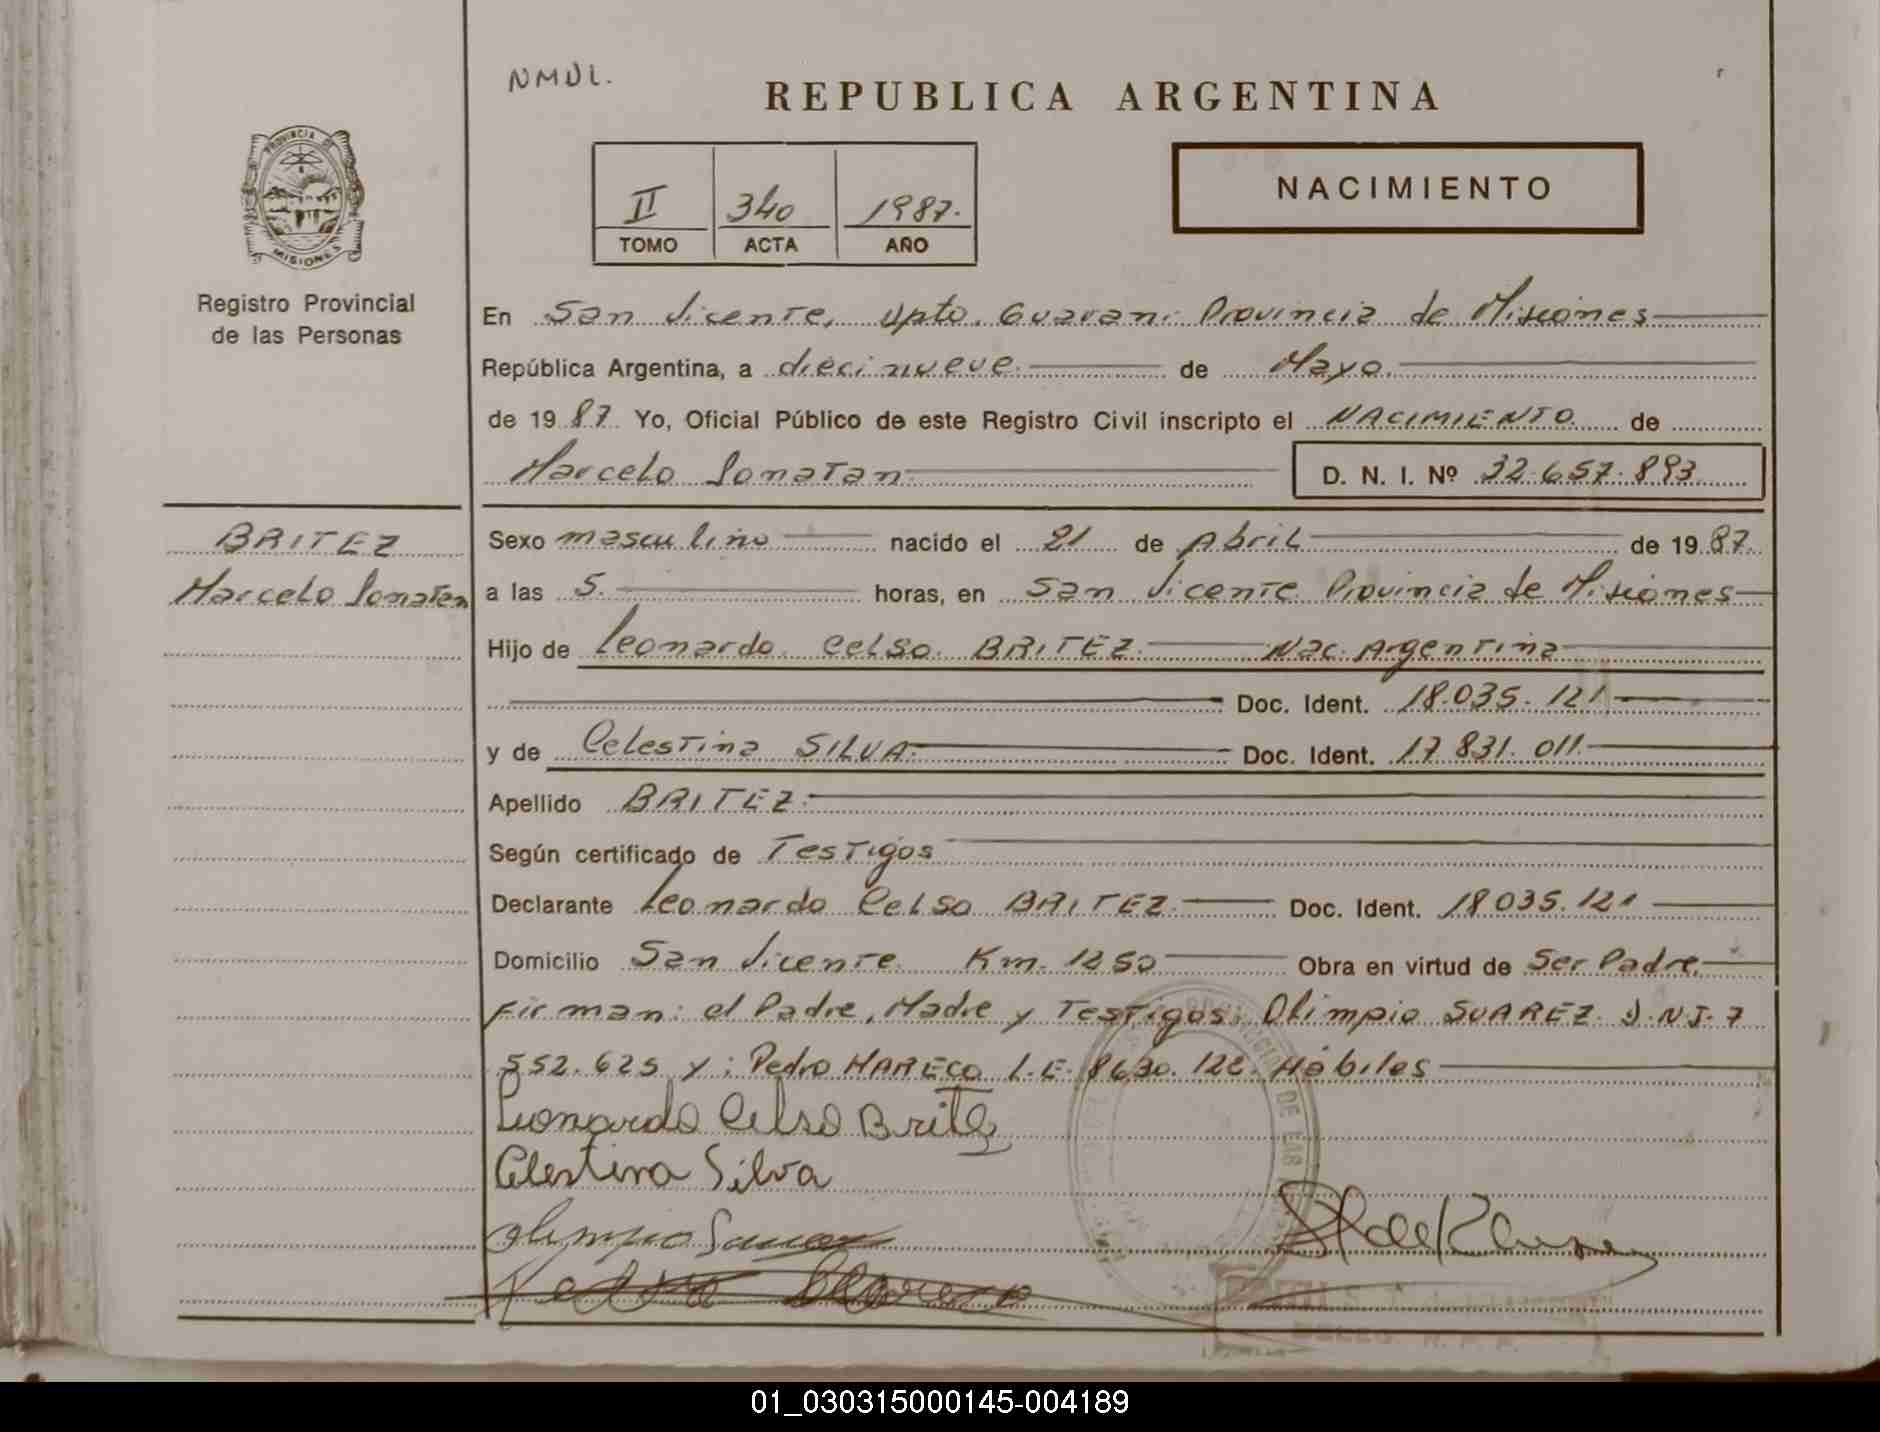 NMDL.
REPUBLICA ARGENTINA
PROVINCIA DE
MISIONES
Registro Provincial
de las Personas
II 340 1987.
TOMO ACTA AÑO
NACIMIENTO
En San Vicente, Dpto. Guarani Provincia de Misiones
República Argentina, a diecinueve de Mayo.
de 1987. Yo, Oficial Público de este Registro Civil inscripto el NACIMIENTO de
Marcelo Jonatan. D. N. I. Nº 32.657.893
BRITEZ
Marcelo Jonatan
Sexo masculino nacido el 21 de Abril de 1987.
a las 5. horas, en San Vicente Provincia de Misiones
Hijo de Leonardo Celso BRITEZ. Nac. Argentina
Doc. Ident. 18.035.121
y de Celestina SILVA. Doc. Ident. 17 831.011.
Apellido BRITEZ.
Según certificado de Testigos
Declarante Leonardo Celso BRITEZ. Doc. Ident. 18 035.121
Domicilio San Vicente Km. 1250 Obra en virtud de Ser Padre
Firman: el Padre, Madre y Testigos: Olimpio SUAREZ D.N.I. 7
552.625 y: Pedro MARECO L.E. 8630.122. Hábiles
Leonardo Celso Britez
Celestina Silva
Olimpio Suarez
Pedro Mareco
DE LAS
01_030315000145-004189